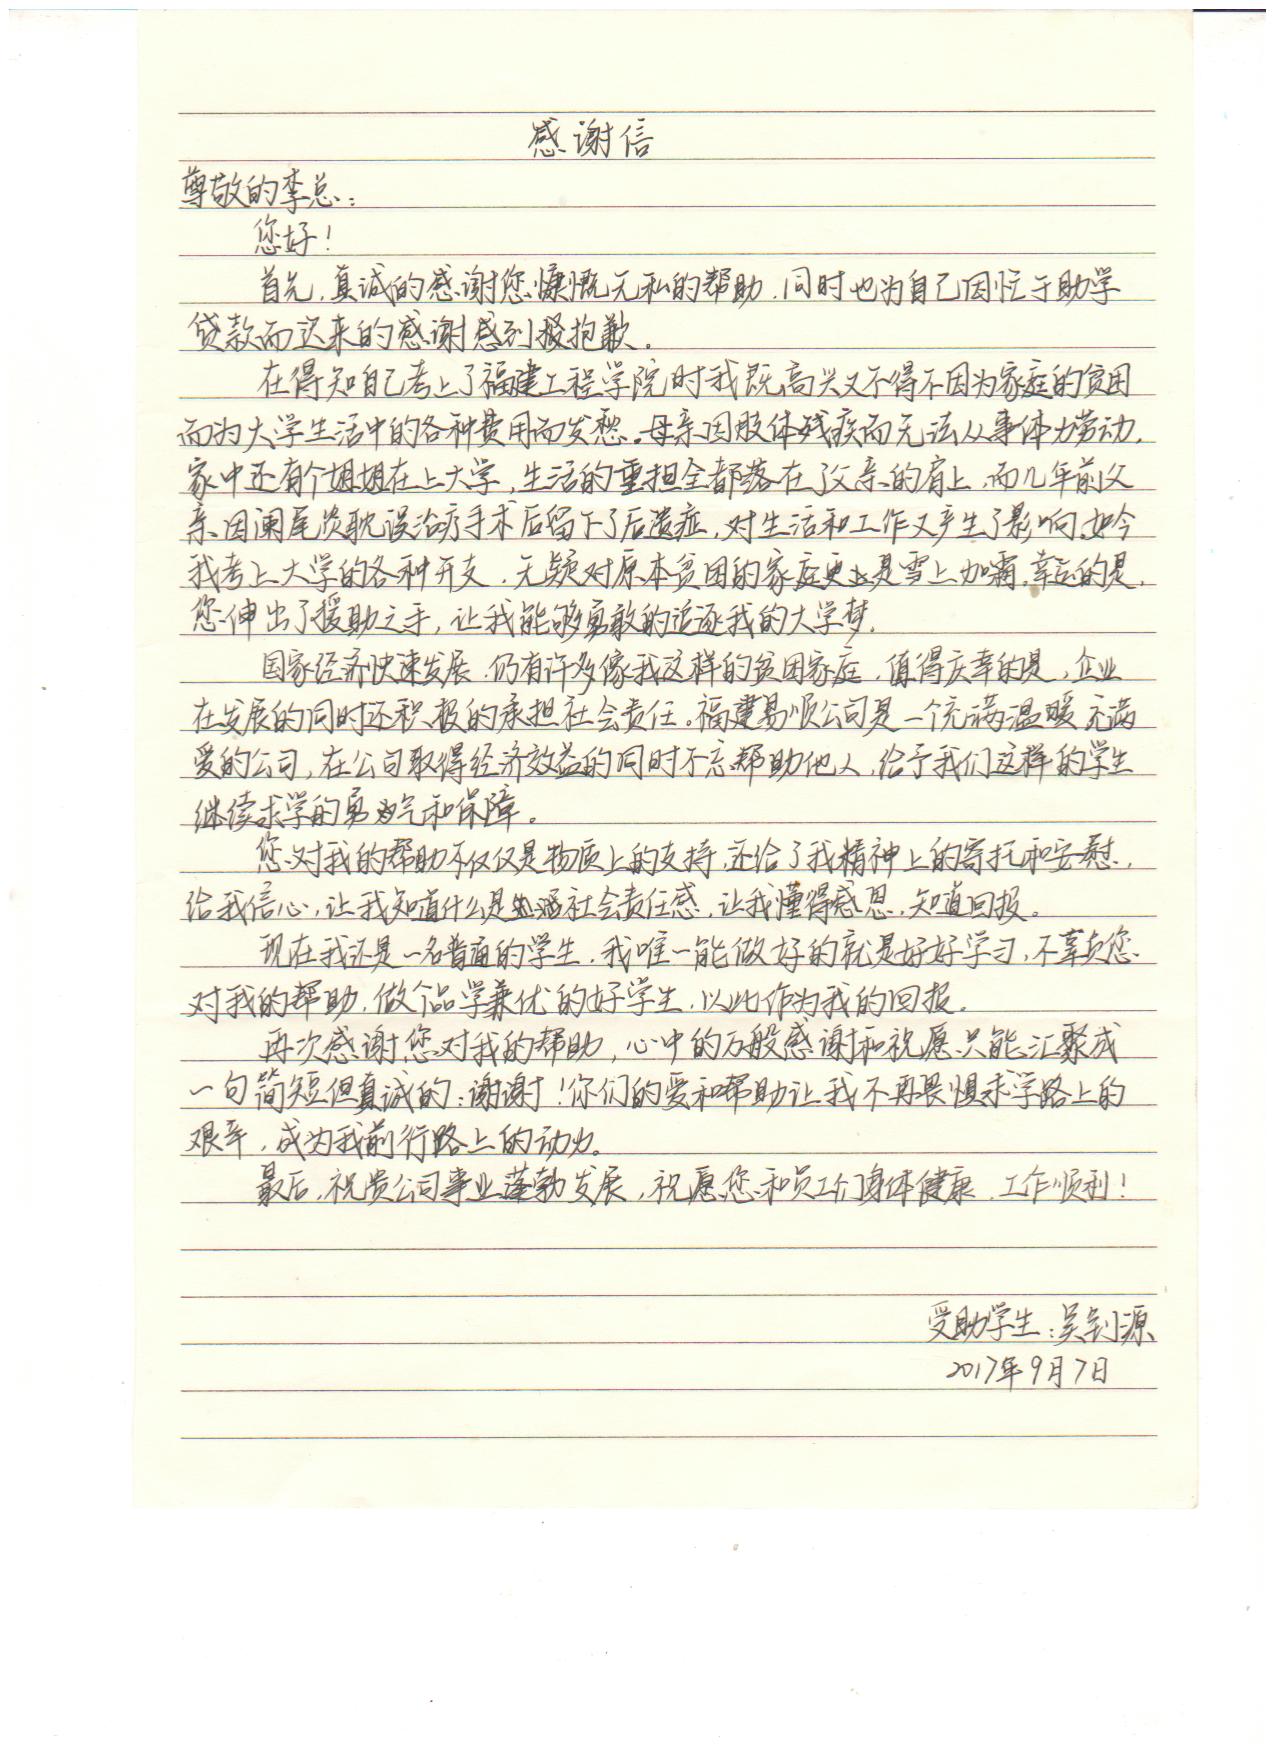 感谢信
尊敬的李总：
您好！
首先，真诚的感谢您慷慨无私的帮助，同时也为自己因忙于助学
贷款而迟来的感谢感到报抱歉。
在得知自己考上了福建工程学院时我既高兴又不得不因为家庭的贫困
而为大学生活中的各种费用而发愁。母亲因肢体残疾而无法从事体力劳动，
家中还有个姐姐在上大学，生活的重担全都落在了父亲的肩上，而几年前父
亲因阑尾炎耽误治疗手术后留下了后遗症，对生活和工作又产生了影响，如今
我考上大学的各种开支，无疑对原本贫困的家庭更是雪上加霜，幸运的是，
您伸出了援助之手，让我能够勇敢的追逐我的大学梦，
国家经济快速发展，仍有许多像我这样的贫困家庭，值得庆幸的是，企业
在发展的同时还积极的承担社会责任。福建易顺公司是一个充满温暖充满
爱的公司，在公司取得经济效益的同时不忘帮助他人，给予我们这样的学生
继续求学的勇气和保障。
您对我的帮助不仅仅是物质上的支持，还给了我精神上的寄托和安慰，
给我信心，让我知道什么是社会责任感，让我懂得感恩，知道回报。
现在我还是一名普通的学生，我唯一能做好的就是好好学习，不辜负您
对我的帮助，做个品学兼优的好学生，以此作为我的回报。
再次感谢您对我的帮助，心中的万般感谢和祝愿只能汇聚成
一句简短但真诚的：谢谢！你们的爱和帮助让我不再畏惧求学路上的
艰辛，成为我前行路上的动力。
最后，祝贵公司事业蓬勃发展，祝愿您和员工们身体健康，工作顺利！
受助学生：吴钊源
2017年9月7日